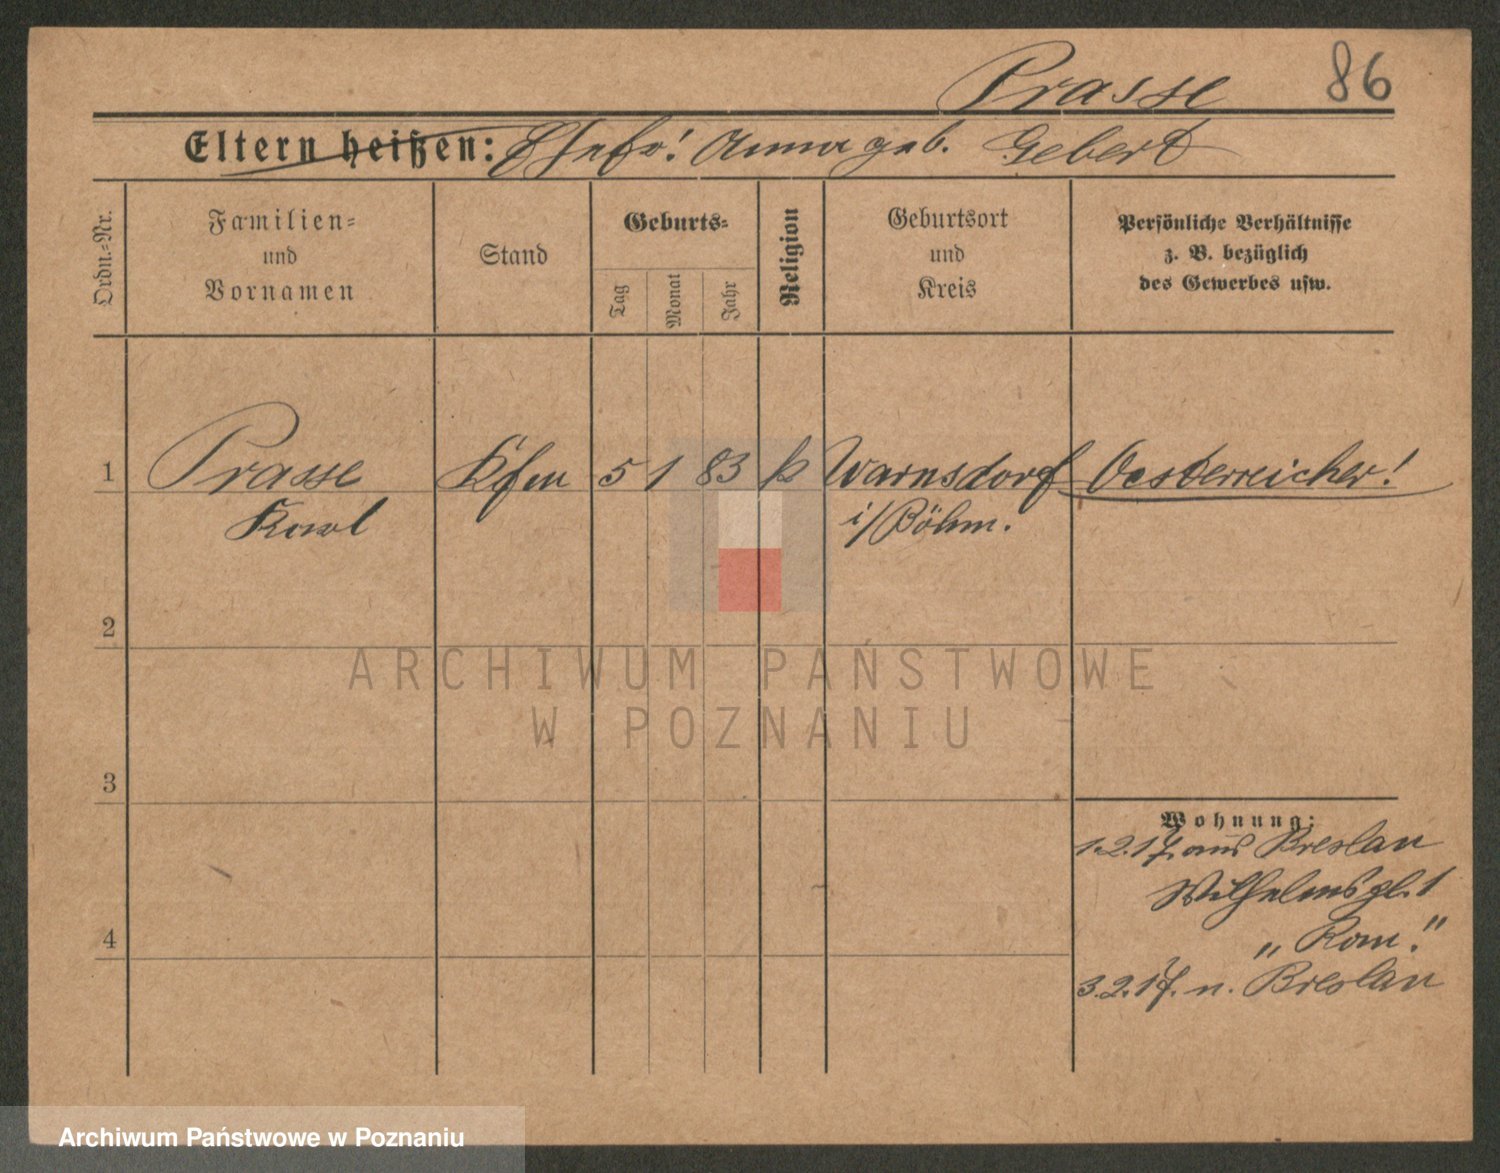 Prasse 86
Eltern heißen: Ehefr! Anna geb. Gebert
Ordn.=Nr.
Familien=
und
Vornamen
Stand
Geburts=
Tag
Monat
Jahr
Religion
Geburtsort
und
Kreis
Persönliche Verhältnisse
z. B. bezüglich
des Gewerbes usw.
1 Prasse Kfm 5 1 83 k Warnsdorf Oesterreicher!
Karl i/Böhm.
2
ARCHIWUM PAŃSTWOWE
W POZNANIU
3
Wohnung:
1.2.17. aus Breslau
Wilhelmspl. 1
„Rom."
4
3.2.17. n. Breslau
Archiwum Państwowe w Poznaniu